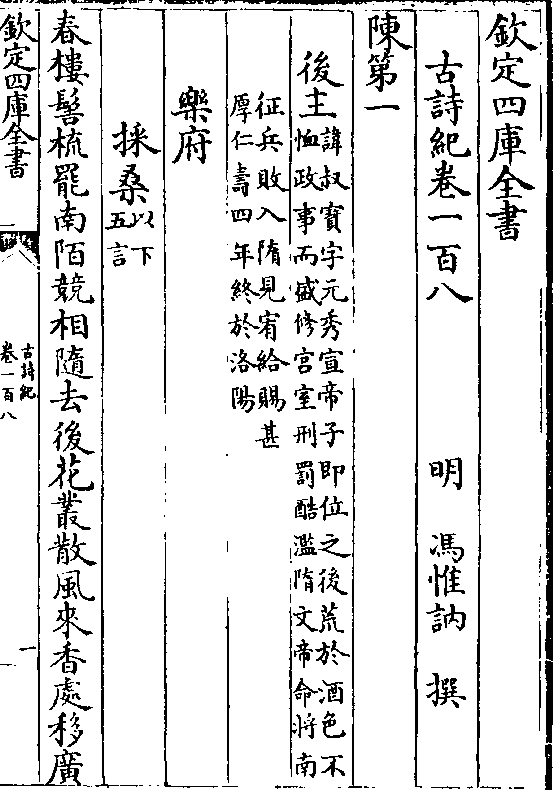 欽定四庫全書
古詩紀卷一百八
明 馮惟訥 撰
陳第一
後主諱叔寶字元秀宣帝子即位之後荒於酒色不
恤政事而盛修宮室刑罰酷濫隋文帝命將南
征兵敗入隋見宥給賜甚
厚仁壽四年終於洛陽
樂府
採桑以下
五言
春樓髻梳罷南陌競相隨去後花叢散風來香處移廣
欽定四庫全書
古詩紀
卷一百八
一